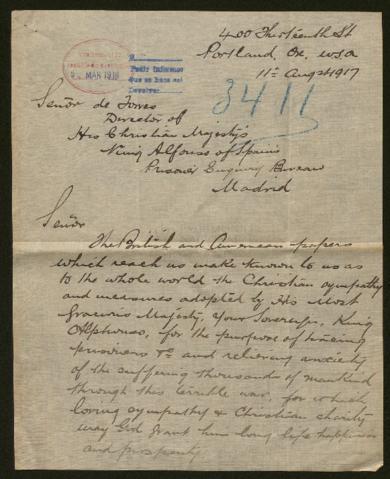 400 Thirteenth St
Portland, Or, USA
11th Augst 1917
MAR 1918
Pedir Informes
que se hace en
Devolver
3411
Señor de Torres
Director of
His Christian Majesty's
King Alfonso of Spain's
Prisoners Enquiry Bureau
Madrid
Señor
The British and American papers
which reach us make known to us as
to the whole world the Christian sympathy
and measures adopted by His Most
Gracious Majesty, your Sovereign, King
Alphonso, for the purpose of tracing
prisoners &c and relieving anxiety
of the suffering thousands of mankind
through this terrible war, for which
loving sympathy & Christian charity
may God grant him long life happiness
and prosperity